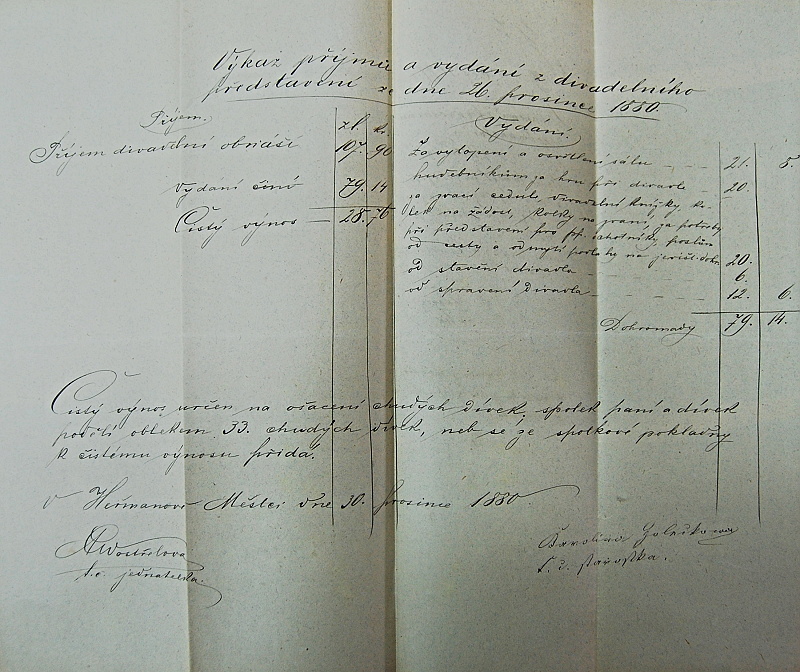 Výkaz příjmu a vydání z divadelního
představení ze dne 26. prosince 1880.
Příjem.
zl. kr.
Příjem divadelní obnáší 107. 90
vydání činí 79. 14
Čistý výnos — 28. 76
Vydání.
Za vytopení a osvětlení sálu - - - 21. 8.
hudebníkům za hru při divadle - 20.
za práci cedule, divadelní knížky, ko-
lek na žádost, kolky na hraní, za potřeby
při představení pro pp. ochotníky, poslům
od cesty a od mytí podlahy na jevišti dohr. 20.
od stavění divadla - - - - 6.
od spravení Divadla - - - - 12. 6.
Dohromady 79. 14.
Čistý výnos určen na ošacení chudých dívek, spolek paní a dívek
podělí oblekem 33. chudých dívek, neb se ze spolkové pokladny
k čistému výnosu přidá.
V Heřmanově Městci dne 30. prosince 1880
Wostřelova
t. č. jednatelka.
Karolina
t. č. starostka.